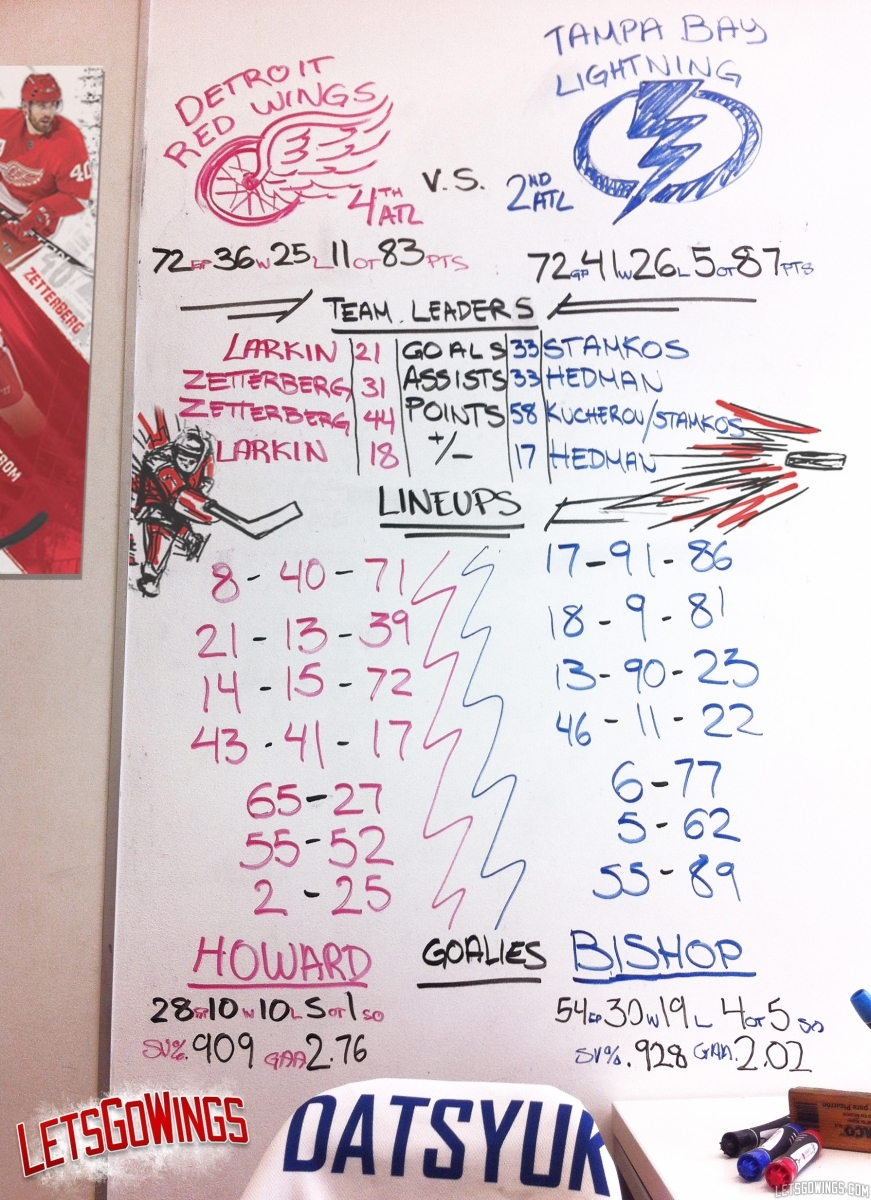 DETROIT
RED WINGS
4TH
ATL
V.S.
TAMPA BAY
LIGHTNING
2ND
ATL
72GP 36W 25L 11OT 83PTS
72GP 41W 26L 5OT 87PTS
TEAM LEADERS
LARKIN 21 GOALS 33 STAMKOS
ZETTERBERG 31 ASSISTS 33 HEDMAN
ZETTERBERG 44 POINTS 58 KUCHEROV/STAMKOS
LARKIN 18 +/- 17 HEDMAN
LINEUPS
8 - 40 - 71
21 - 13 - 39
14 - 15 - 72
43 - 41 - 17
65 - 27
55 - 52
2 - 25
17 - 91 - 86
18 - 9 - 81
13 - 90 - 23
46 - 11 - 22
6 - 77
5 - 62
55 - 89
GOALIES
HOWARD
28GP 10W 10L 5OT 1SO
SV% .909 GAA 2.76
BISHOP
54GP 30W 19L 4OT 5SO
SV% .928 GAA 2.02
40
ZETTERBERG
LETSGOWINGS
DATSYUK
LETSGOWINGS.COM